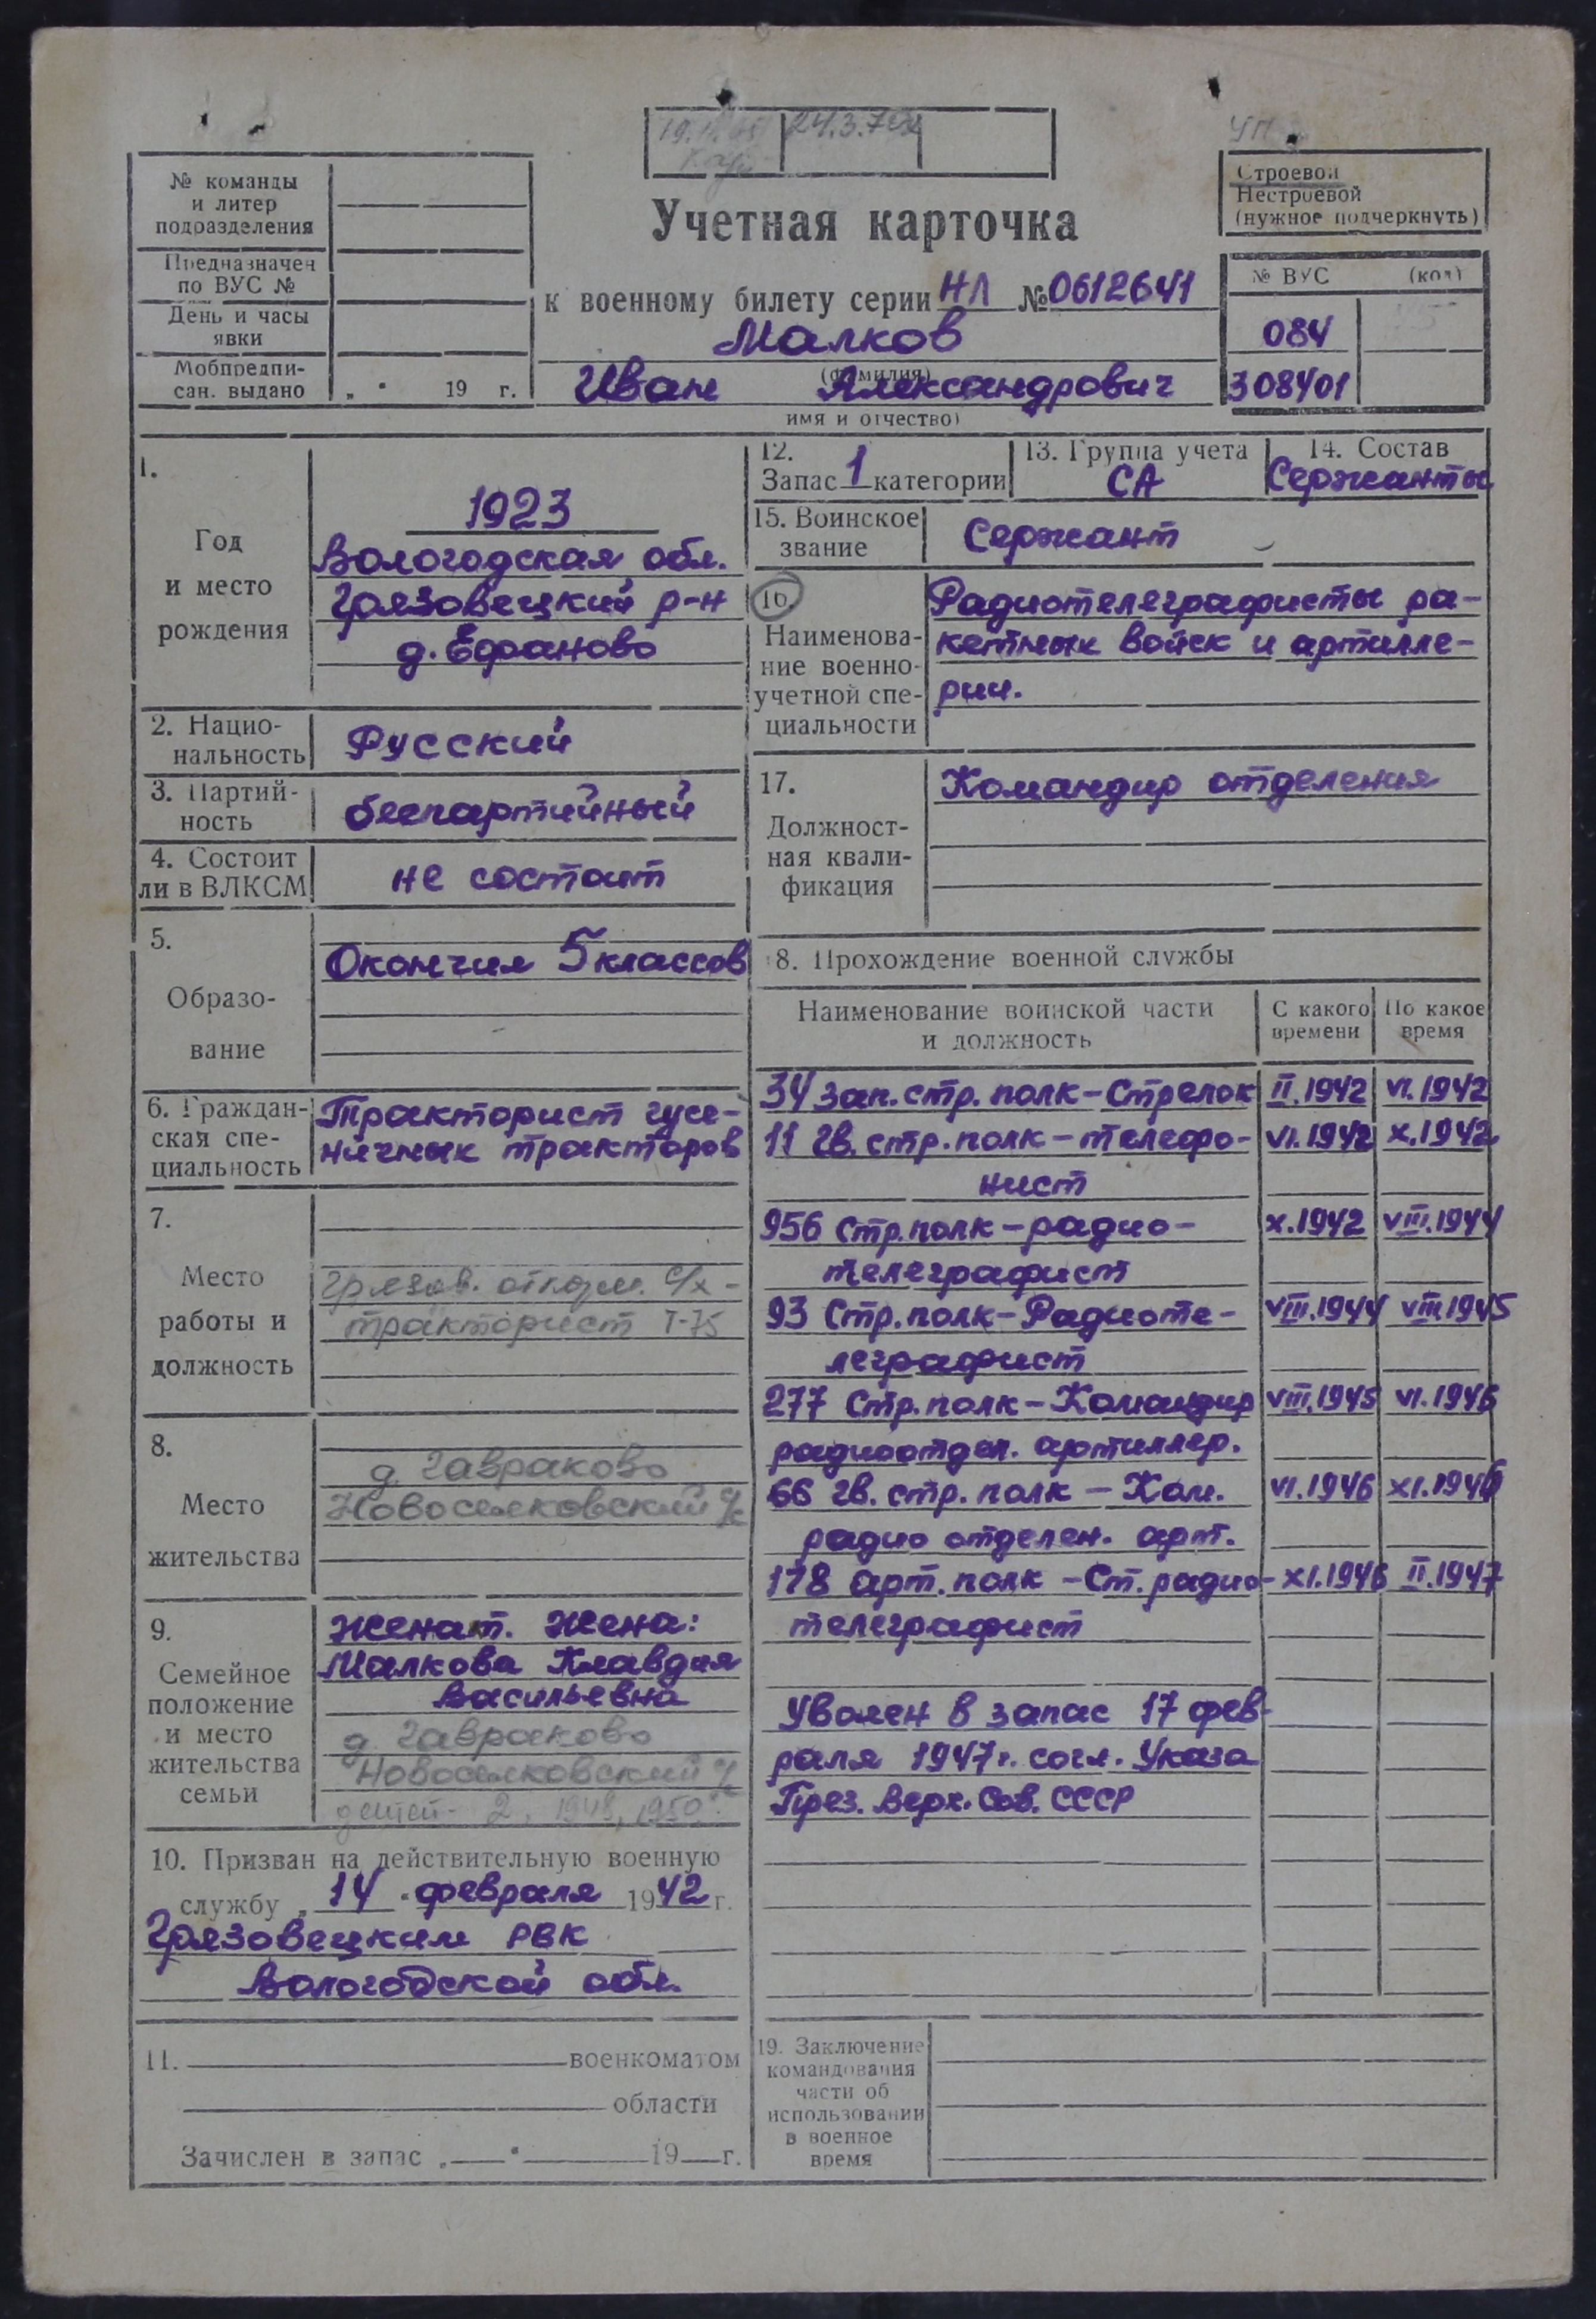 24.3.78
УП
№ команды
и литер
подразделения
Предназначен
по ВУС №
День и часы
явки
Мобпредпи-
сан. выдано „ " 19 г.
Учетная карточка
к военному билету серии НЛ № 0612641
Малков
(фамилия)
Иван Александрович
имя и отчество)
Строевой
Нестроевой
(нужное подчеркнуть)
№ ВУС (код)
084
308401
1.
Год
и место
рождения
1923
Вологодская обл.
Грязовецкий р-н
д. Ефаново
2. Нацио-
нальность
Русский
3. Партий-
ность
беспартийный
4. Состоит
ли в ВЛКСМ
не состоит
5.
Образо-
вание
Окончил 5 классов
6. Граждан-
ская спе-
циальность
Тракторист гусе-
ничных тракторов
7.
Место
работы и
должность
Грязов. откорм. с/х -
тракторист Т-75
8.
Место
жительства
д. Гавраково
Новоселковский с/с
9.
Семейное
положение
и место
жительства
семьи
Женат. Жена:
Малкова Клавдия
Васильевна
д. Гавраково
Новоселковский с/с
детей - 2, 1948, 1950г.
10. Призван на действительную военную
службу „ 14 " февраля 1942 г.
Грязовецким РВК
Вологодской обл.
11. военкоматом
области
Зачислен в запас „ " 19 г.
12.
Запас 1 категории
13. Группа учета
СА
14. Состав
Сержанты
15. Воинское
звание
Сержант
16.
Наименова-
ние военно-
учетной спе-
циальности
Радиотелеграфисты ра-
кетных войск и артилле-
рии.
17.
Должност-
ная квали-
фикация
Командир отделения
8. Прохождение военной службы
Наименование воинской части
и должность
С какого
времени
По какое
время
34 зап. стр. полк - Стрелок II.1942 VI.1942
11 гв. стр. полк - телефо- VI.1942 X.1942
нист
956 Стр. полк - радио- X.1942 VIII.1944
телеграфист
93 Стр. полк - Радиоте- VIII.1944 VIII.1945
леграфист
277 Стр. полк - Командир VIII.1945 VI.1946
радиоотдел. артиллер.
66 гв. стр. полк - Ком. VI.1946 XI.1946
радио отделен. арт.
178 арт. полк - Ст. радио- XI.1946 II.1947
телеграфист
Уволен в запас 17 фев-
раля 1947г. согл. Указа
През. Верх. Сов. СССР
19. Заключение
командования
части об
использовании
в военное
время